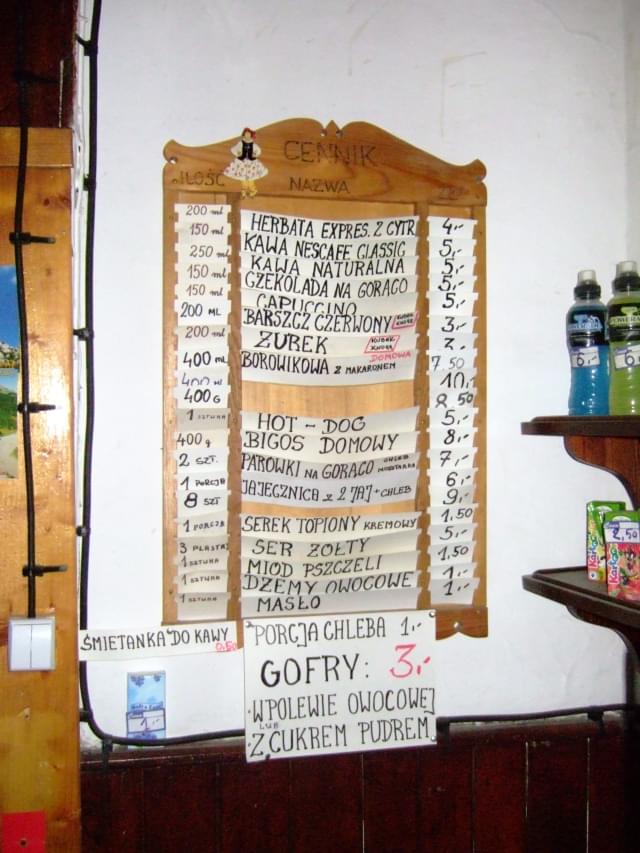 CENNIK
ILOŚĆ NAZWA
200 ml HERBATA EXPRES. Z CYTR 4,-
150 ml KAWA NESCAFE CLASSIC 5,-
250 ml KAWA NATURALNA 5,-
150 ml CZEKOLADA NA GORĄCO 5,-
150 ml CAPUCCINO 5,-
200 ML BARSZCZ CZERWONY KUBEK KNORR 3,-
200 ml ŻUREK KUBEK KNORR 3,-
400 ML BOROWIKOWA Z MAKARONEM DOMOWA 7.50
400 ml 10,-
400 G 8,50
1 SZTUKA HOT - DOG 5,-
400 g BIGOS DOMOWY 8,-
2 SZT. PARÓWKI NA GORĄCO CHLEB MUSZTARDA 7,-
1 PORCJA JAJECZNICA Z 2 JAJ + CHLEB 6,-
8 SZT 9,-
1 PORCJA SEREK TOPIONY KREMOWY 1,50
3 PLASTRY SER ŻÓŁTY 5,-
1 SZTUKA MIÓD PSZCZELI 1,50
1 SZTUKA DŻEMY OWOCOWE 1,-
1 SZTUKA MASŁO 1,-
ŚMIETANKA DO KAWY 0,50
PORCJA CHLEBA 1,-
GOFRY: 3,-
W POLEWIE OWOCOWEJ
LUB
Z CUKREM PUDREM
1,-
6,-
6,-
2,50